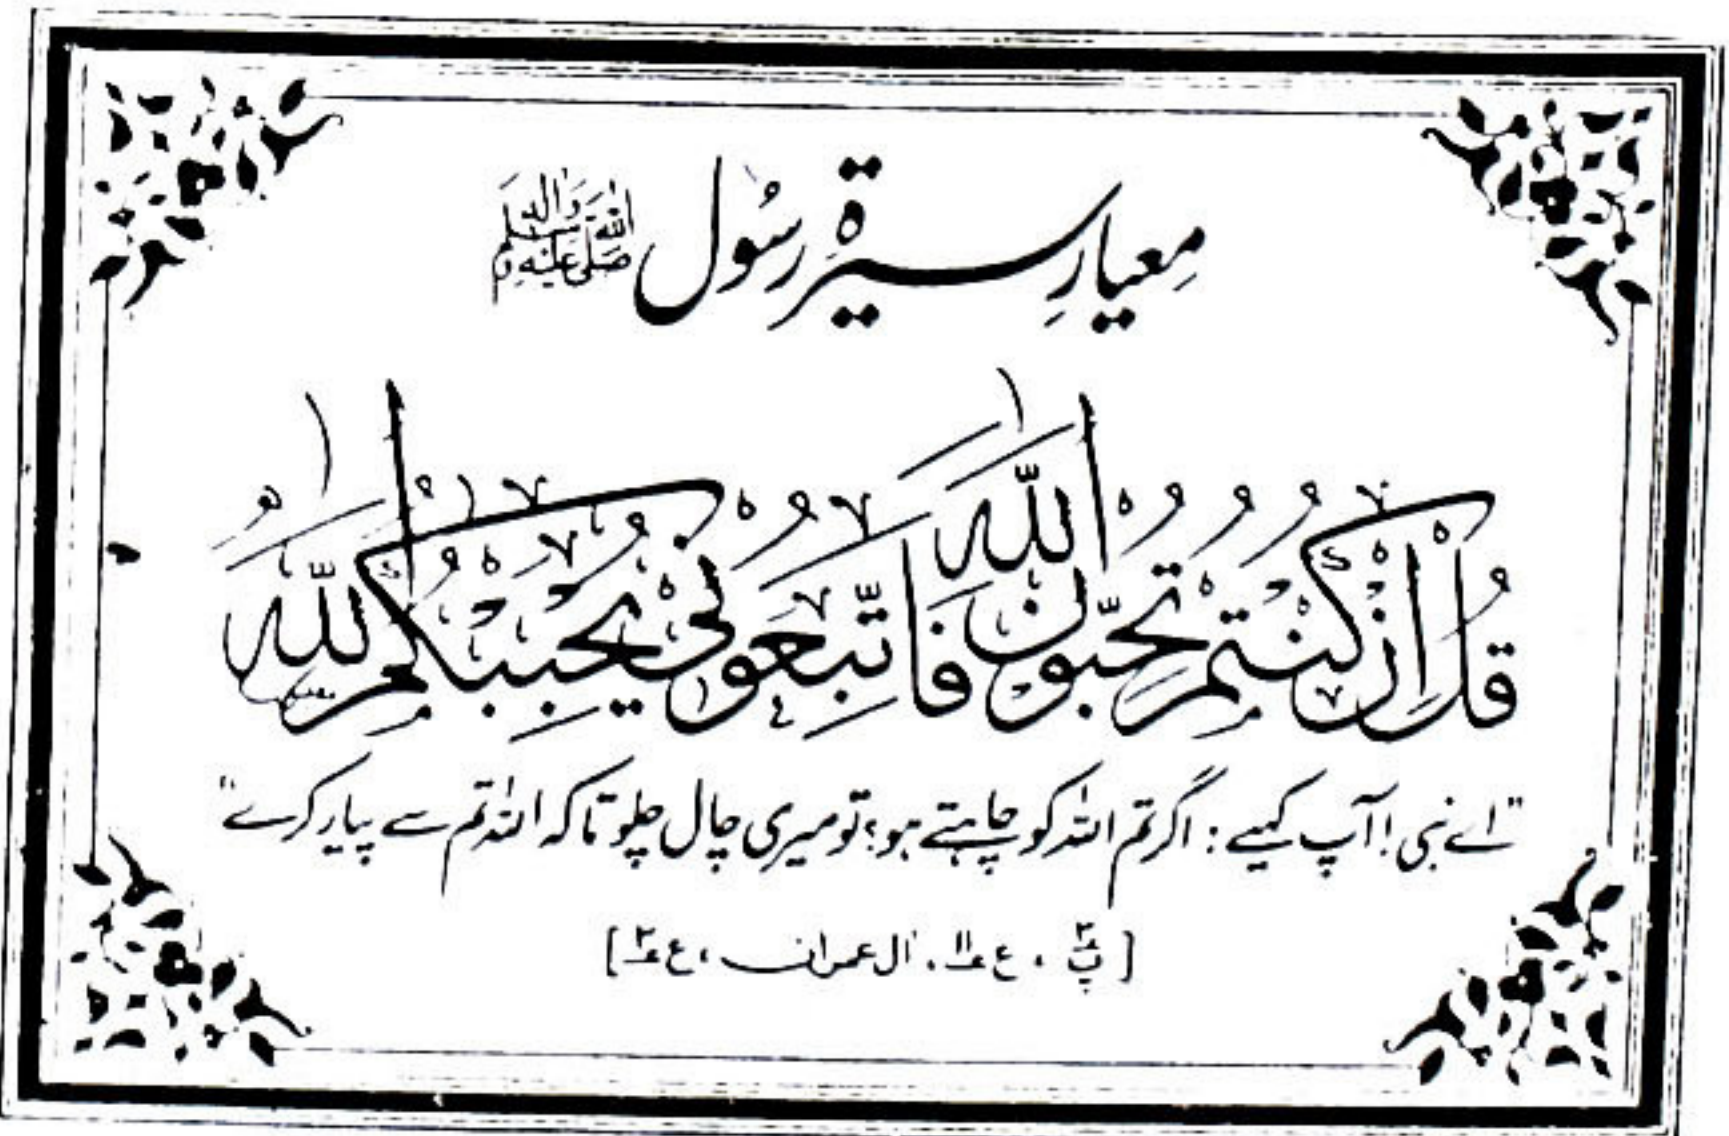 معیارِ سیرۃِ رسُول صَلَّی اللّٰهُ عَلَیْهِ وَاٰلِهٖ وَسَلَّم
قُلْ اِنْ كُنْتُمْ تُحِبُّوْنَ اللّٰهَ فَاتَّبِعُوْنِیْ یُحْبِبْكُمُ اللّٰهُ
"اے نبی! آپ کہیے : اگر تم اللہ کو چاہتے ہو؛ تو میری چال چلو تاکہ اللہ تم سے پیار کرے"
[پ۳ ، ع۱۲، اٰل عمران ، ع۴]